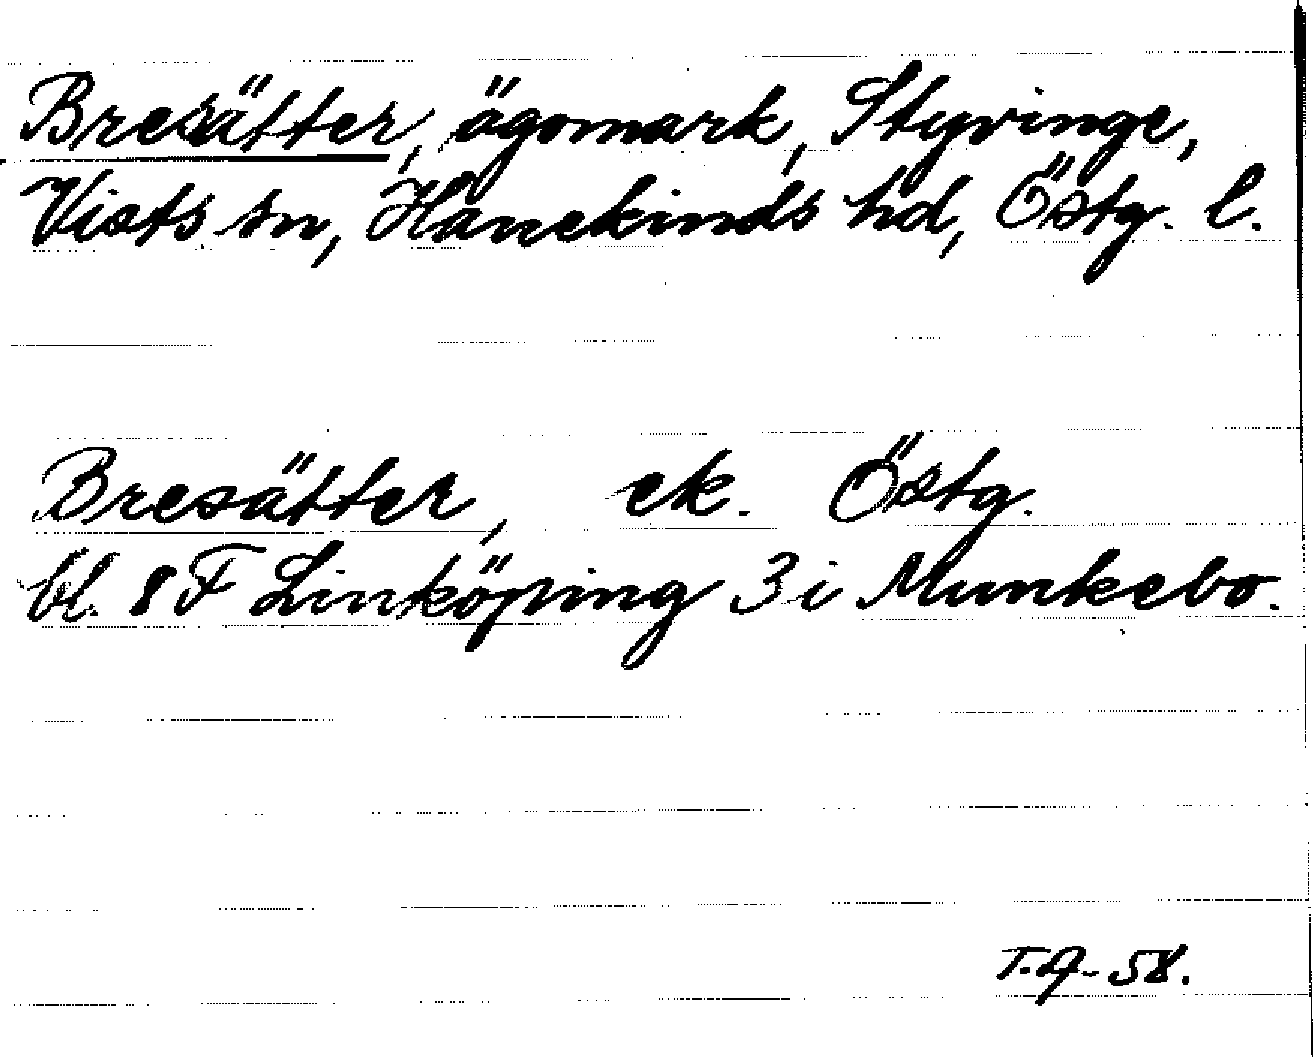 Bresätter, ägomark, Styvinge,
Vists sn, Hanekinds hd, Östg. l.
Bresätter, ek. Östg.
bl. 8 F Linköping 3 i Munkebo.
T.A-58.